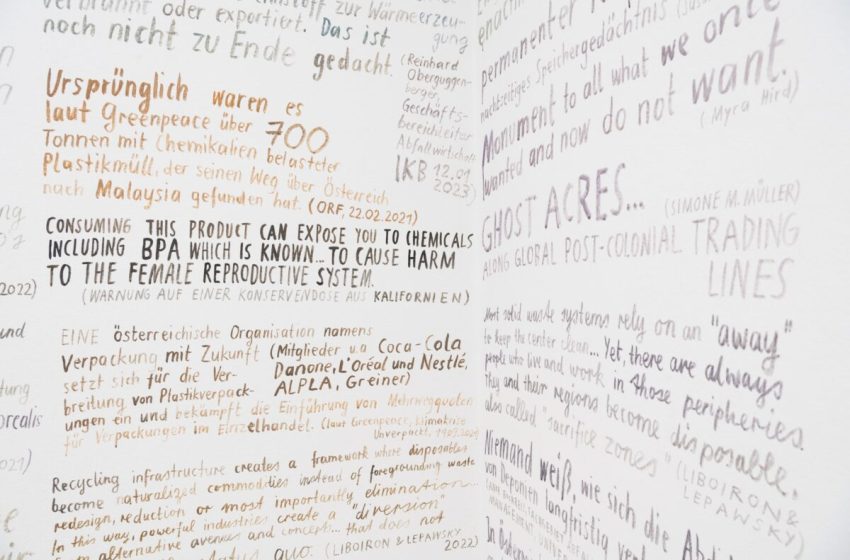 verbrannt oder exportiert. Das ist
noch nicht zu Ende gedacht.
(Reinhard
Oberguggen-
berger,
Geschäfts-
bereichsleiter
Abfallwirtschaft
IKB 12.01
2023)
Ursprünglich waren es
laut Greenpeace über 700
Tonnen mit Chemikalien belasteter
Plastikmüll, der seinen Weg über Österreich
nach Malaysia gefunden hat. (ORF, 22.02.2021)
CONSUMING THIS PRODUCT CAN EXPOSE YOU TO CHEMICALS
INCLUDING BPA WHICH IS KNOWN... TO CAUSE HARM
TO THE FEMALE REPRODUCTIVE SYSTEM.
(WARNUNG AUF EINER KONSERVENDOSE AUS KALIFORNIEN)
EINE österreichische Organisation namens
Verpackung mit Zukunft (Mitglieder u.a Coca-Cola
Danone, L'Oréal und Nestlé,
ALPLA, Greiner)
setzt sich für die Ver-
breitung von Plastikverpack-
ungen ein und bekämpft die Einführung von Mehrwegquoten
für Verpackungen im Einzelhandel. (laut Greenpeace, Klimakrise
Unverpackt,
Recycling infrastructure creates a framework where disposables
become naturalized commodities instead of foregrounding waste
redesign, reduction or most importantly elimination...
In this way, powerful industries create a "diversion"
from alternative avenues and concepts... that does not
status quo. (LIBOIRON & LEPAWSKY
2022)
permanenter
nachzeitiges Speichergedächtnis
Monument to all what we once
wanted and now do not want.
(Myra Hird)
GHOST ACRES... (SIMONE M. MÜLLER)
ALONG GLOBAL POST-COLONIAL TRADING
LINES
Most solid waste systems rely on an "away"
to keep the center clean... Yet, there are always
people who live and work in those peripheries.
They and their regions become disposable,
also called "sacrifice zones" (LIBOIRON &
LEPAWSKY)
Niemand weiß, wie sich die
von Deponien langfristig
2022)
und
2021)